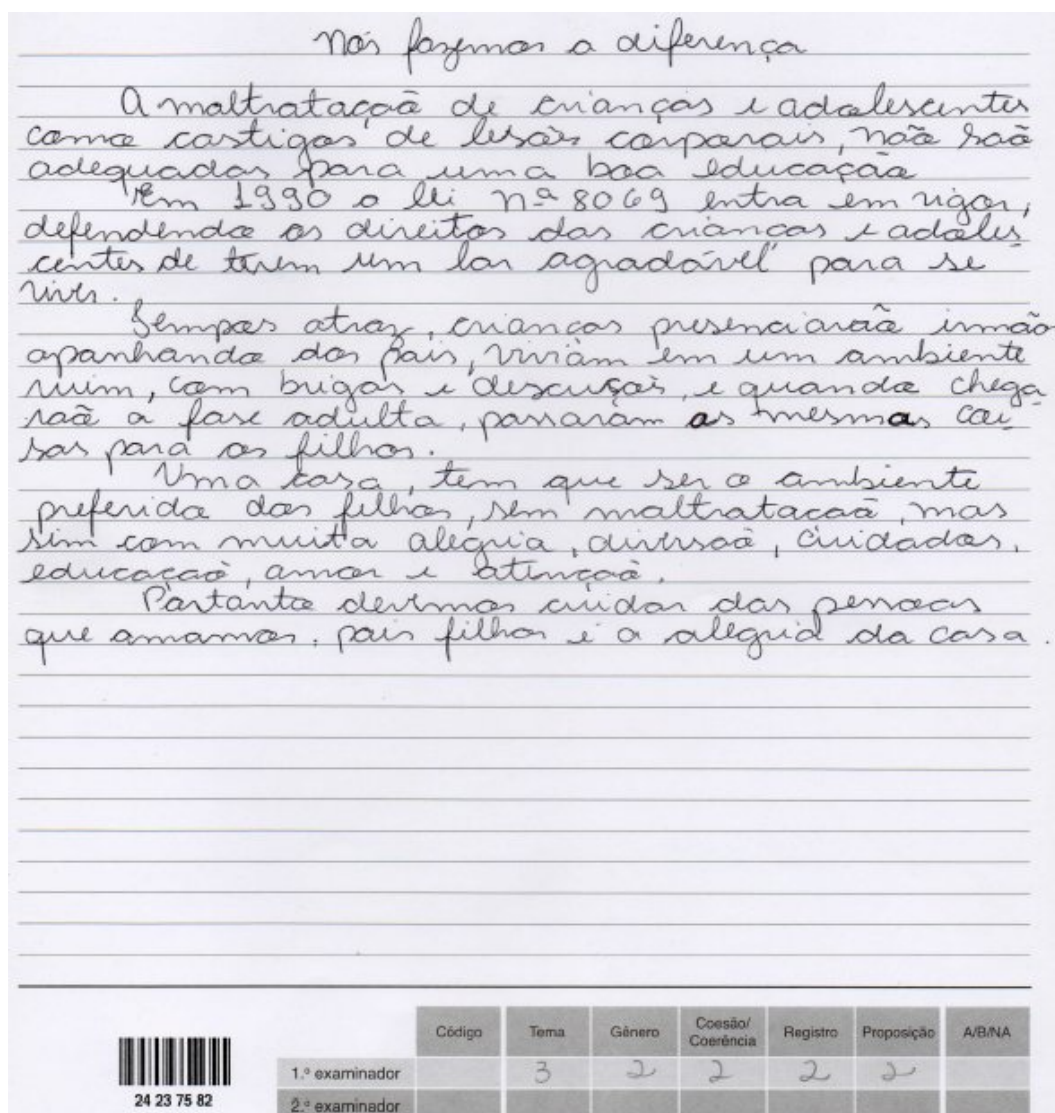 Nós fazemos a diferença
A maltratação de crianças e adolescentes
como castigos de lesões corporais, não são
adequados para uma boa educação
Em 1990 a lei nº 8069 entra em vigor,
defendendo os direitos das crianças e adoles
centes de terem um lar agradável para se
viver.
Tempos atraz, crianças presenciarão irmão
apanhando dos pais, viviam em um ambiente
ruim, com brigas e descuções, e quando chega
rão a fase adulta, passaram as mesmas coi
sas para os filhos.
Uma casa, tem que ser o ambiente
preferido dos filhos, sem maltratacão, mas
sim com muita alegria, diversão, cuidados,
educação, amor e atenção.
Portanto devemos cuidar das pessoas
que amamos. pois filhos é a alegria da casa.
Código Tema Gênero Coesão/Coerência Registro Proposição A/B/NA
1.º examinador 3 2 2 2 2
24 23 75 82
2.º examinador